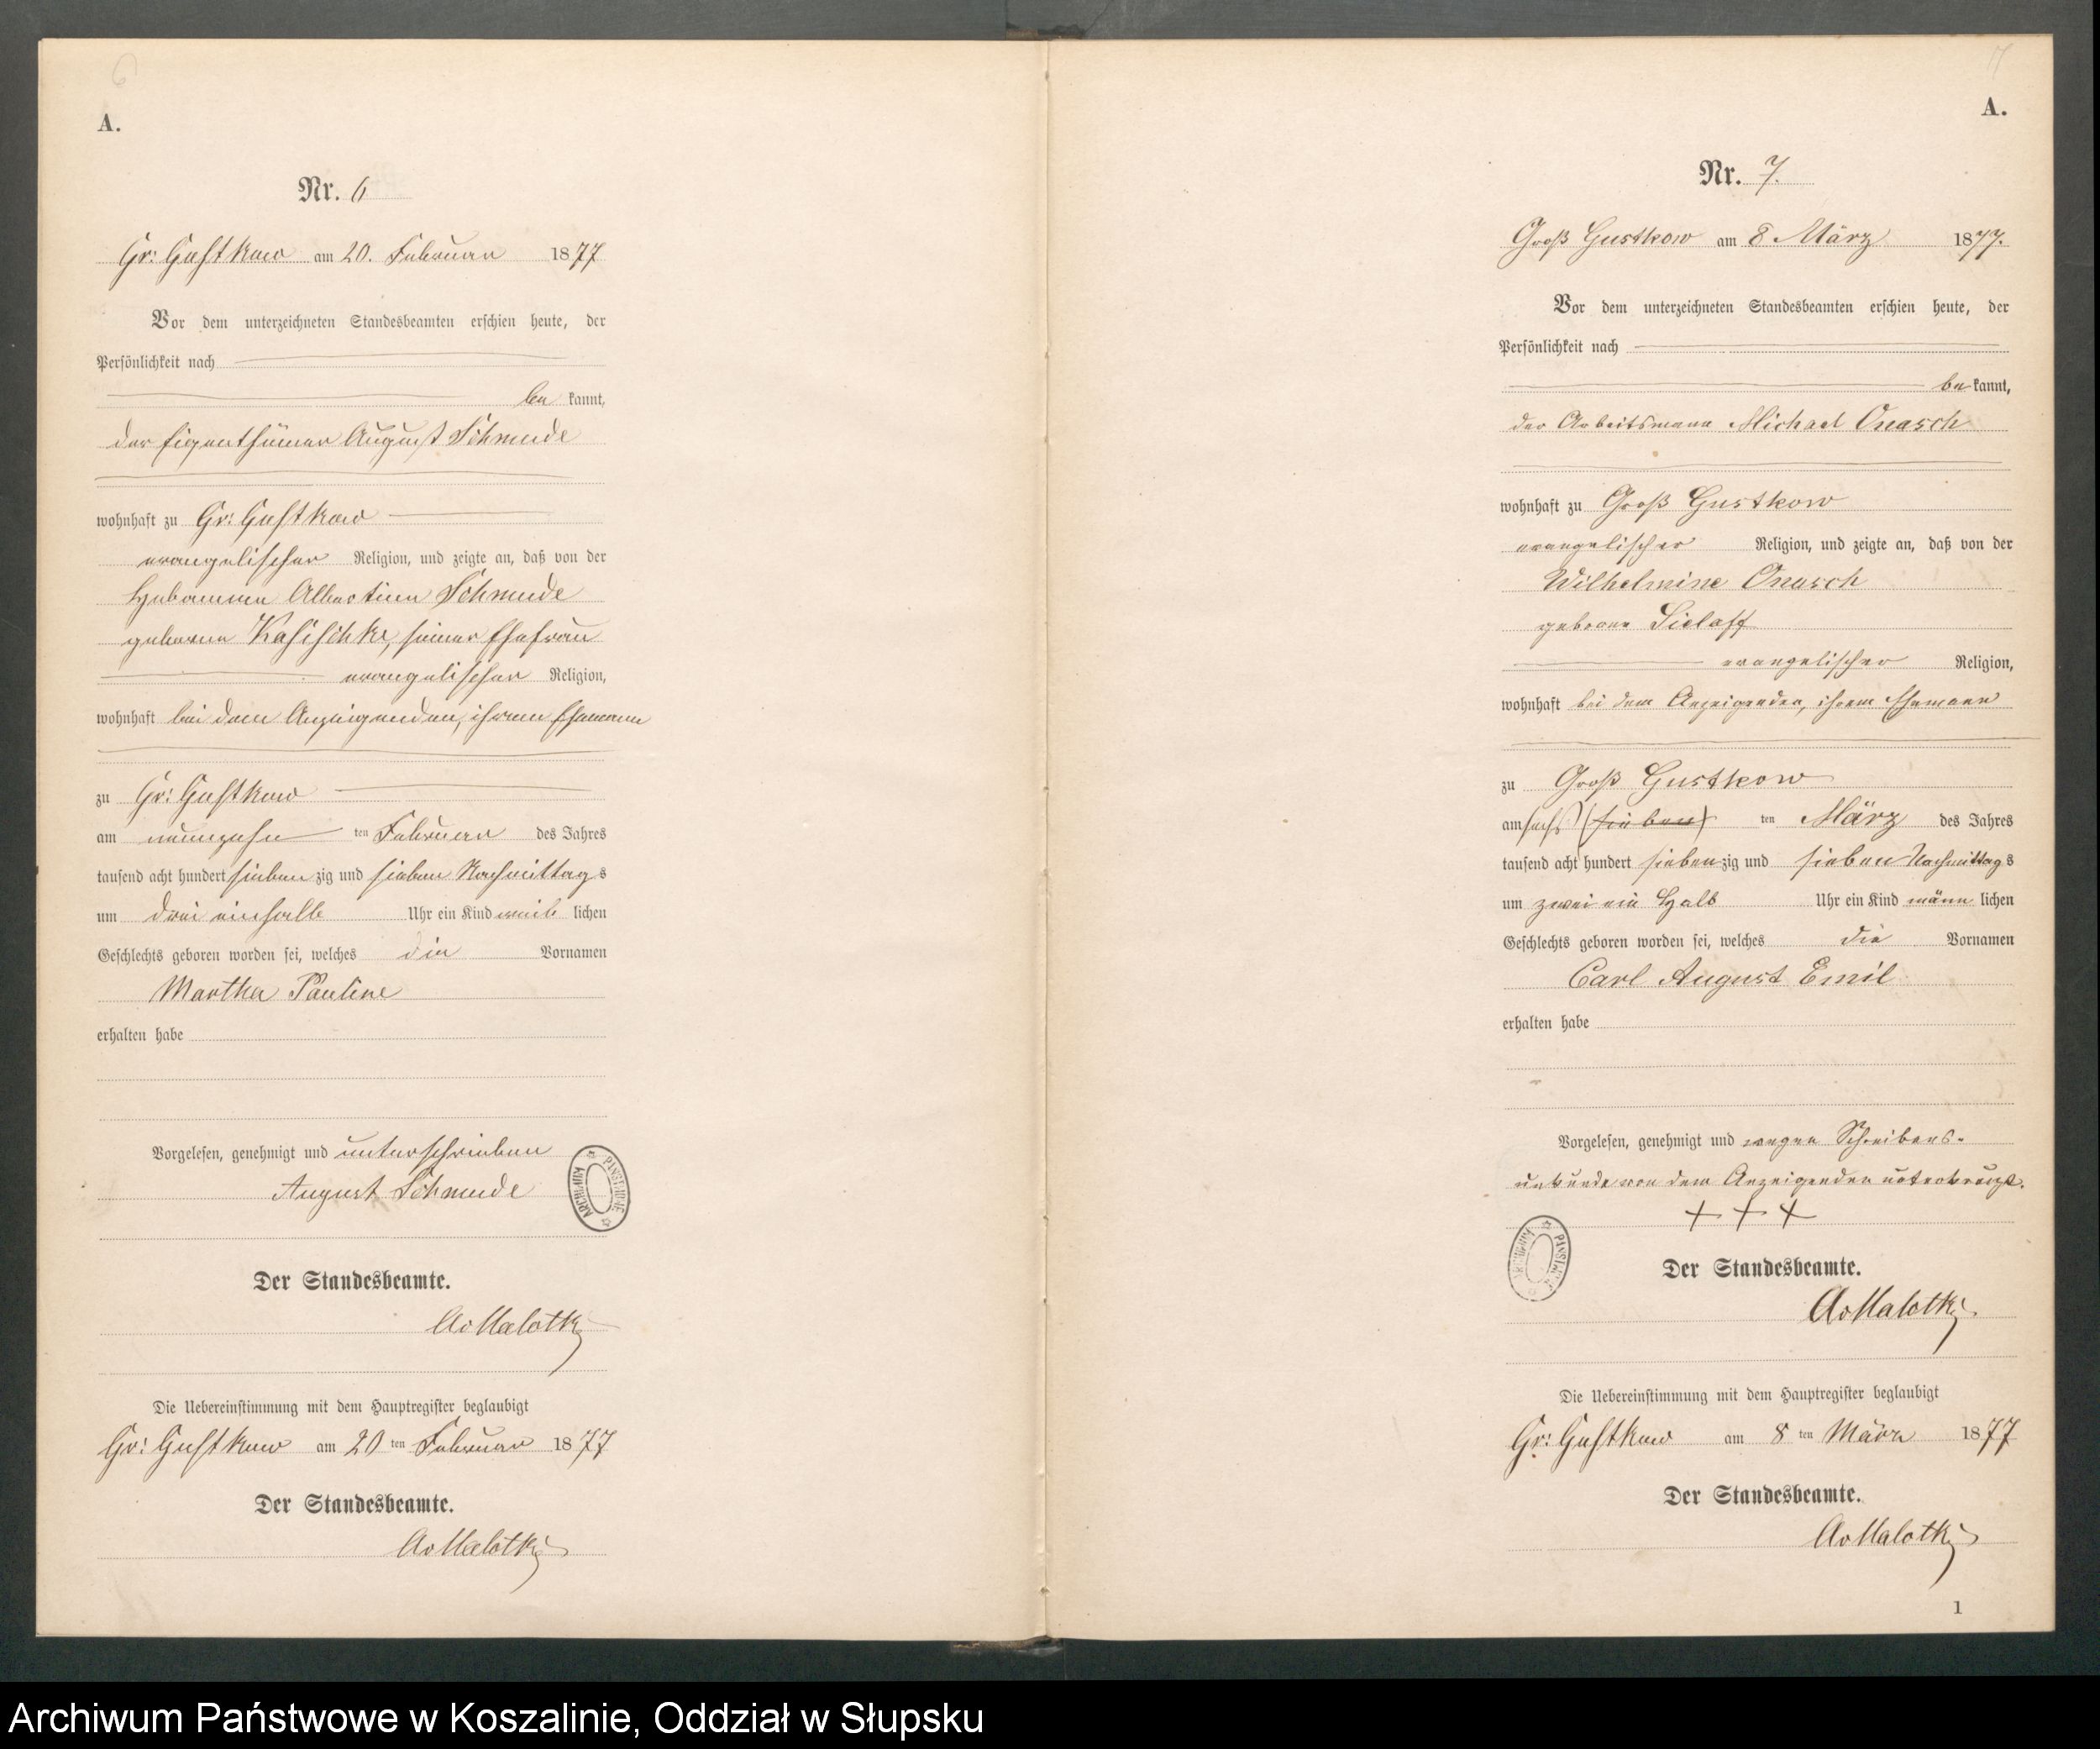 6
A.
Nr. 6
Gr: Gustkow am 20. Februar 1877
Vor dem unterzeichneten Standesbeamten erschien heute, der
Persönlichkeit nach
be kannt,
der Eigenthümer August Schmude
wohnhaft zu Gr: Gustkow
evangelischer Religion, und zeigte an, daß von der
Hebamme Albertine Schmude
geborene Kasischke, seiner Ehefrau
evangelischer Religion,
wohnhaft bei dem Anzeigenden, ihrem Ehemann
zu Gr: Gustkow
am neunzehn ten Februar des Jahres
tausend acht hundert sieben zig und sieben Nachmittag s
um drei einhalb Uhr ein Kind weib lichen
Geschlechts geboren worden sei, welches die Vornamen
Martha Pauline
erhalten habe
Vorgelesen, genehmigt und unterschrieben
August Schmude
ARCHIWUM PAŃSTWOWE
Der Standesbeamte.
AvMalotki
Die Uebereinstimmung mit dem Hauptregister beglaubigt
Gr: Gustkow am 20 ten Februar 1877
Der Standesbeamte.
AvMalotki
7
A.
Nr. 7.
Groß Gustkow am 8 März 1877.
Vor dem unterzeichneten Standesbeamten erschien heute, der
Persönlichkeit nach
be kannt,
der Arbeitsmann Michael Onasch
wohnhaft zu Groß Gustkow
evangelischer Religion, und zeigte an, daß von der
Wilhelmine Onasch
geborene Sielaff
evangelischer Religion,
wohnhaft bei dem Anzeigenden, ihrem Ehemann
zu Groß Gustkow
am sechs (sieben) ten März des Jahres
tausend acht hundert sieben zig und sieben Nachmittag s
um zwei ein Halb Uhr ein Kind männ lichen
Geschlechts geboren worden sei, welches die Vornamen
Carl August Emil
erhalten habe
Vorgelesen, genehmigt und wegen Schreibens-
unkunde von dem Anzeigenden unterkreuzt.
+ + +
ARCHIWUM PAŃSTWOWE
Der Standesbeamte.
AvMalotki.
Die Uebereinstimmung mit dem Hauptregister beglaubigt
Gr: Gustkow am 8 ten März 1877
Der Standesbeamte.
AvMalotki
1
Archiwum Państwowe w Koszalinie, Oddział w Słupsku